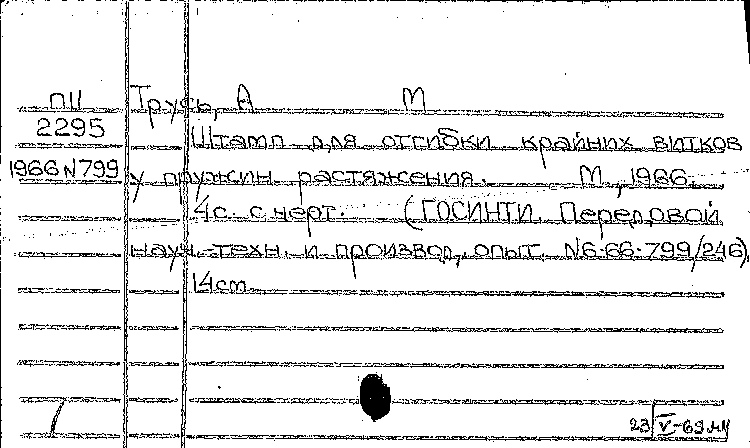 ПII Трусь, А М
2295 Штамп для отгибки крайних витков
1966 N799 у пружин растяжения. М., 1966.
4с. с черт. (ГОСИНТИ. Передовой
науч.-техн. и производ. опыт. N6-66-799/246).
14см.